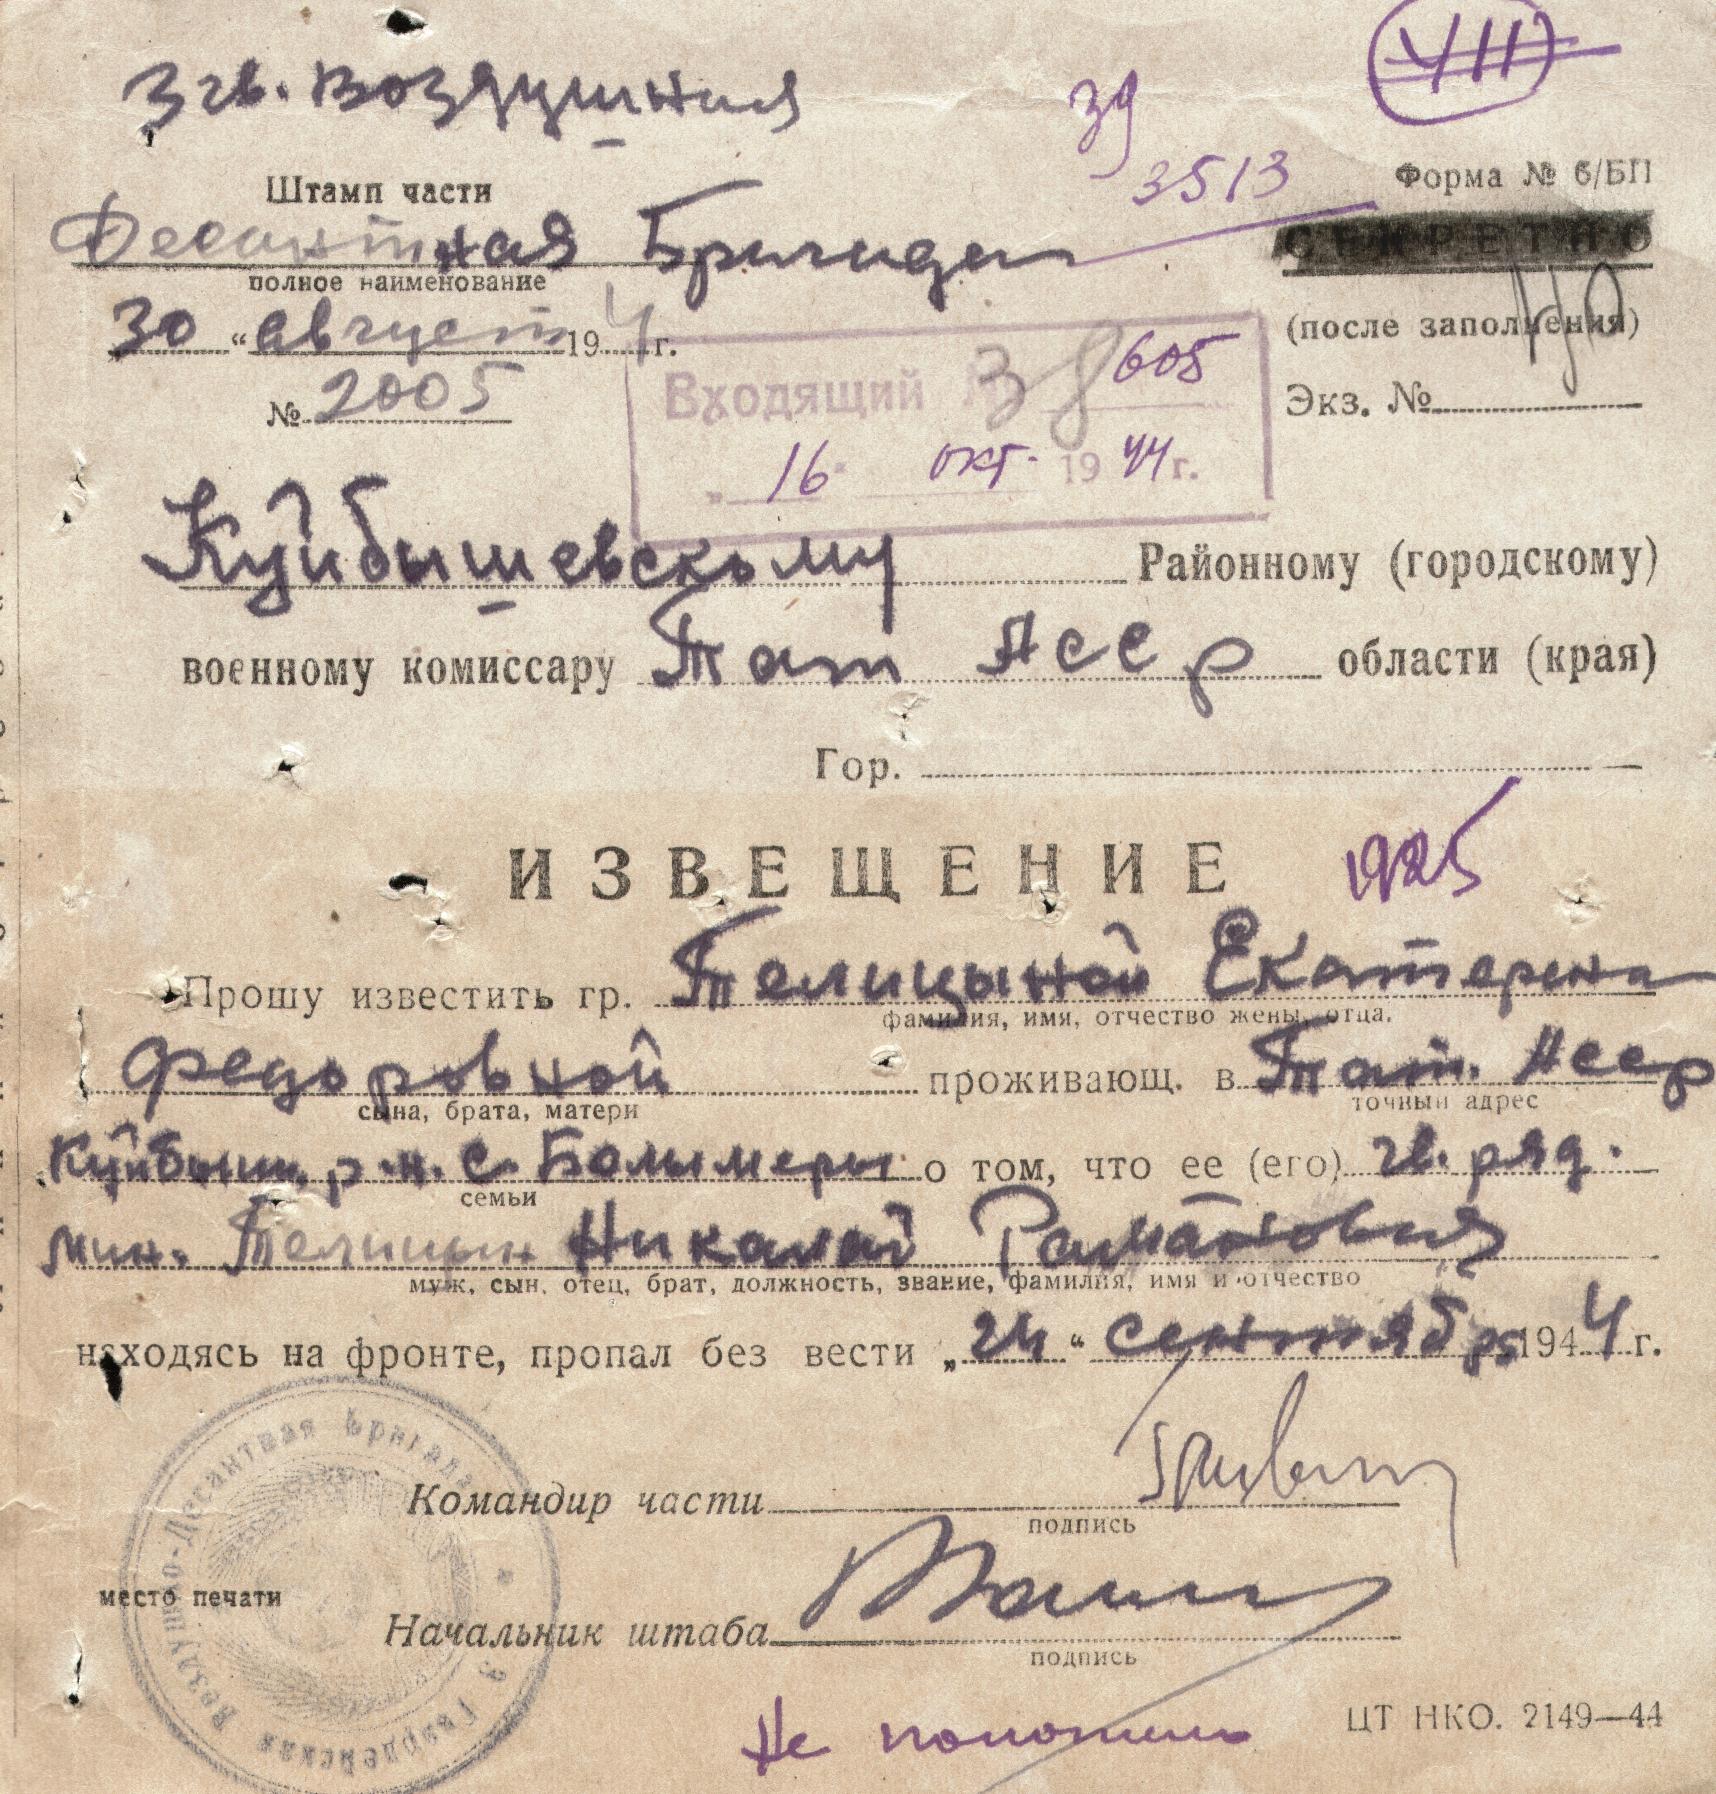 3 гв. Воздушная
39
VII
3513
Форма № 6/БП
Штамп части
Десантная Бригада
СЕКРЕТНО
полное наименование
(после заполнения)
„30“ август 1944 г.
№ 2005
Входящий № 38605
Экз. №
„16“ окт. 1944 г.
Куйбышевскому Районному (городскому)
военному комиссару Тат АССР области (края)
Гор.
ИЗВЕЩЕНИЕ
1925
Прошу известить гр. Телицыной Екатерена
фамилия, имя, отчество жены, отца,
Федоровной проживающ. в Тат. АССР
сына, брата, матери точный адрес
Куйбыш. р-н. с. Болымеры о том, что ее (его) гв. ряд.
семьи
мин. Телицын Николай Раманович
муж, сын, отец, брат, должность, звание, фамилия, имя и отчество
находясь на фронте, пропал без вести „24“ сентября 1944 г.
Командир части
подпись
место печати
Начальник штаба
подпись
3 Гвардейская Воздушно-Десантная Бригада
Не
ЦТ НКО. 2149—44